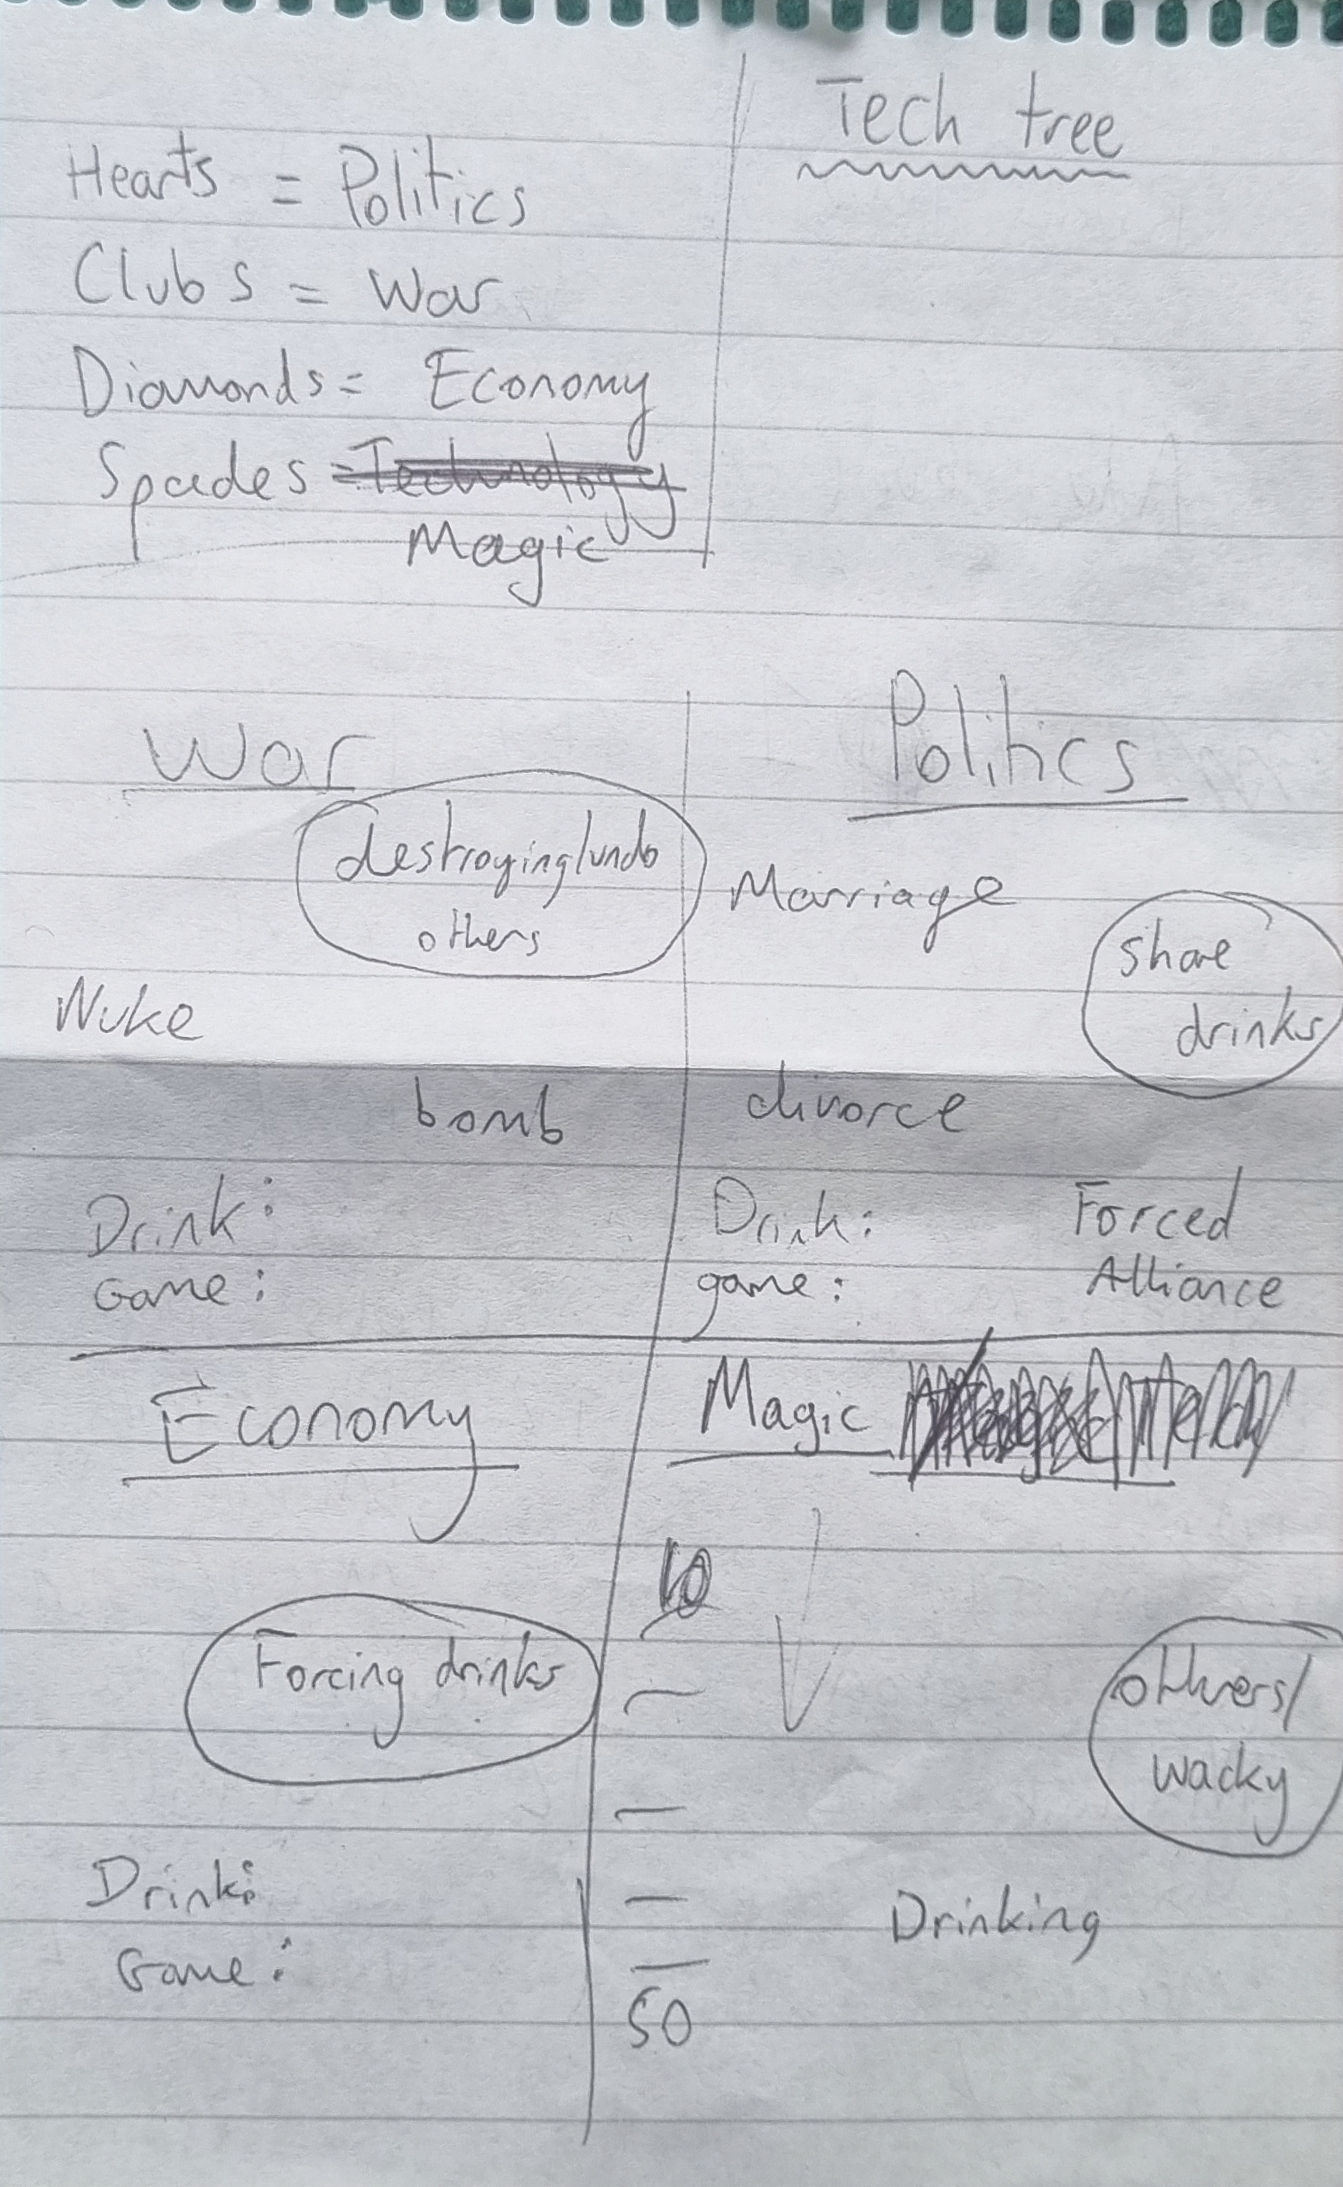 Tech tree
Hearts = Politics
Clubs = War
Diamonds = Economy
Spades = Technology
Magic
War
destroying/undo
others
Nuke
bomb
Drink:
Game:
Politics
Marriage
share
drinks
divorce
Drink:
game:
Forced
Alliance
Economy
Forcing drinks
Drink:
Game:
Magic
10
others/
wacky
Drinking
50